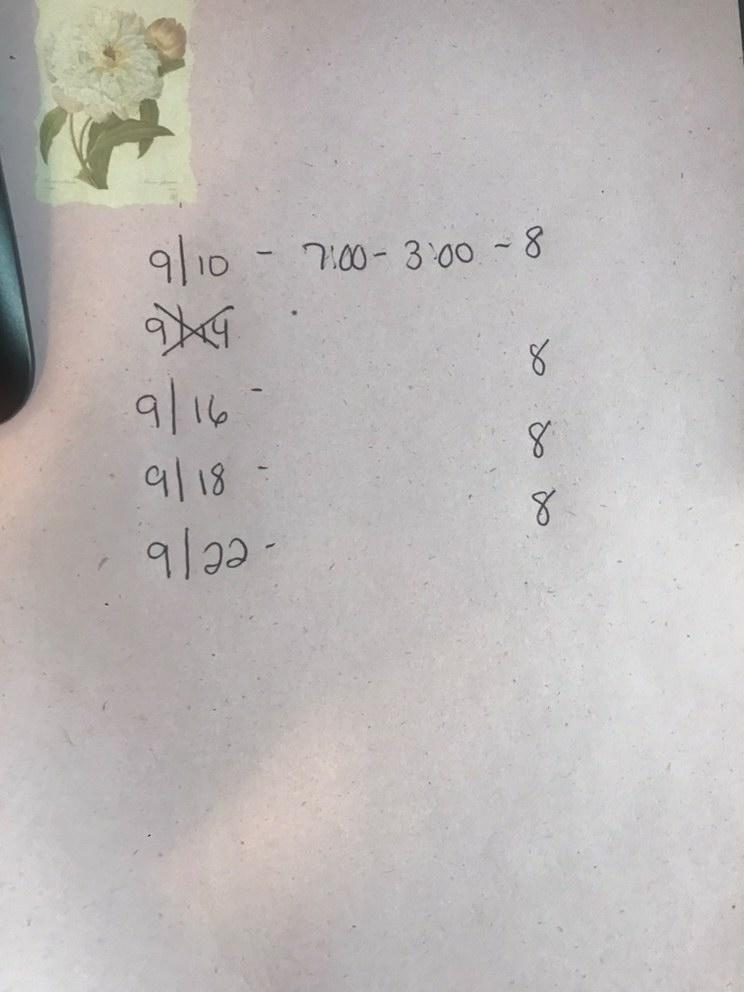 9/10 - 7:00 - 3:00 - 8
9/14
9/16 - 8
9/18 - 8
9/22 - 8